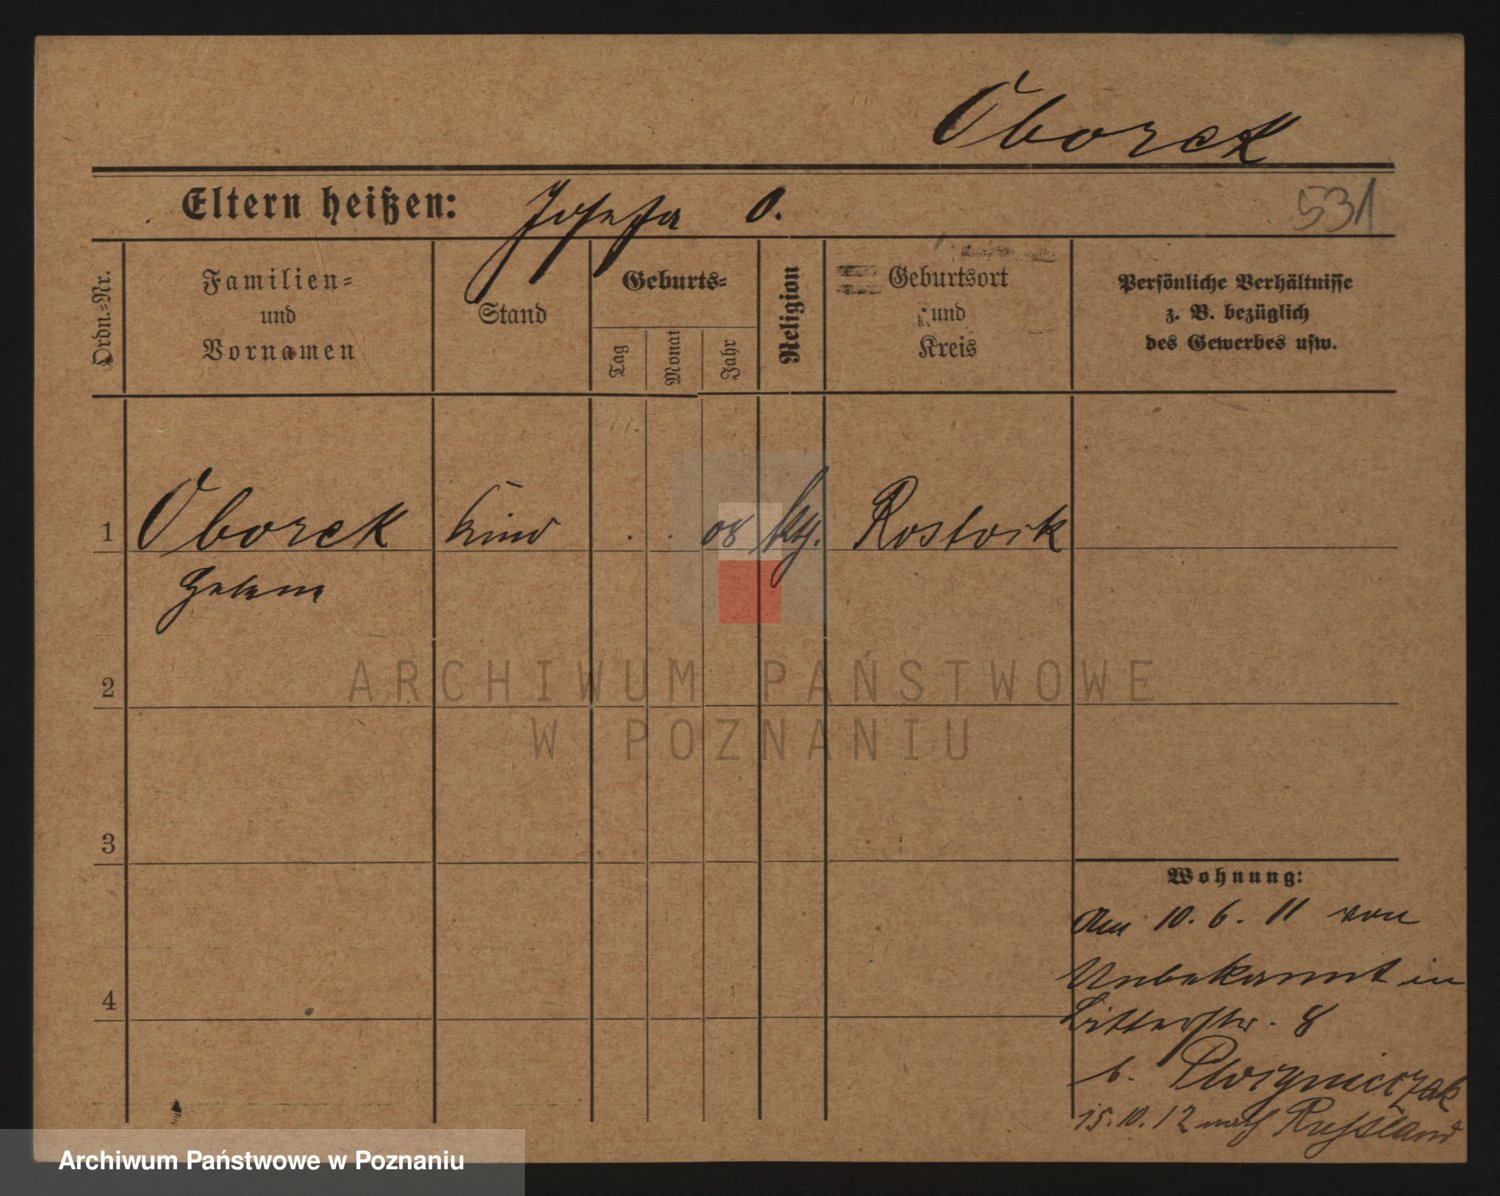 Oborck
Eltern heißen: Josefa O.
531
Ordn.=Nr.
Familien=
und
Vornamen
Stand
Geburts=
Tag
Monat
Jahr
Religion
Geburtsort
und
Kreis
Persönliche Verhältnisse
z. B. bezüglich
des Gewerbes usw.
1 Oborek Kind . . 08 Rostock
Helene
2
3
4
Wohnung:
Am 10. 6. 11 von
Unbekannt in
Ritterstr. 8
b.
15.10.12 nach Russland
ARCHIWUM PAŃSTWOWE
W POZNANIU
Archiwum Państwowe w Poznaniu